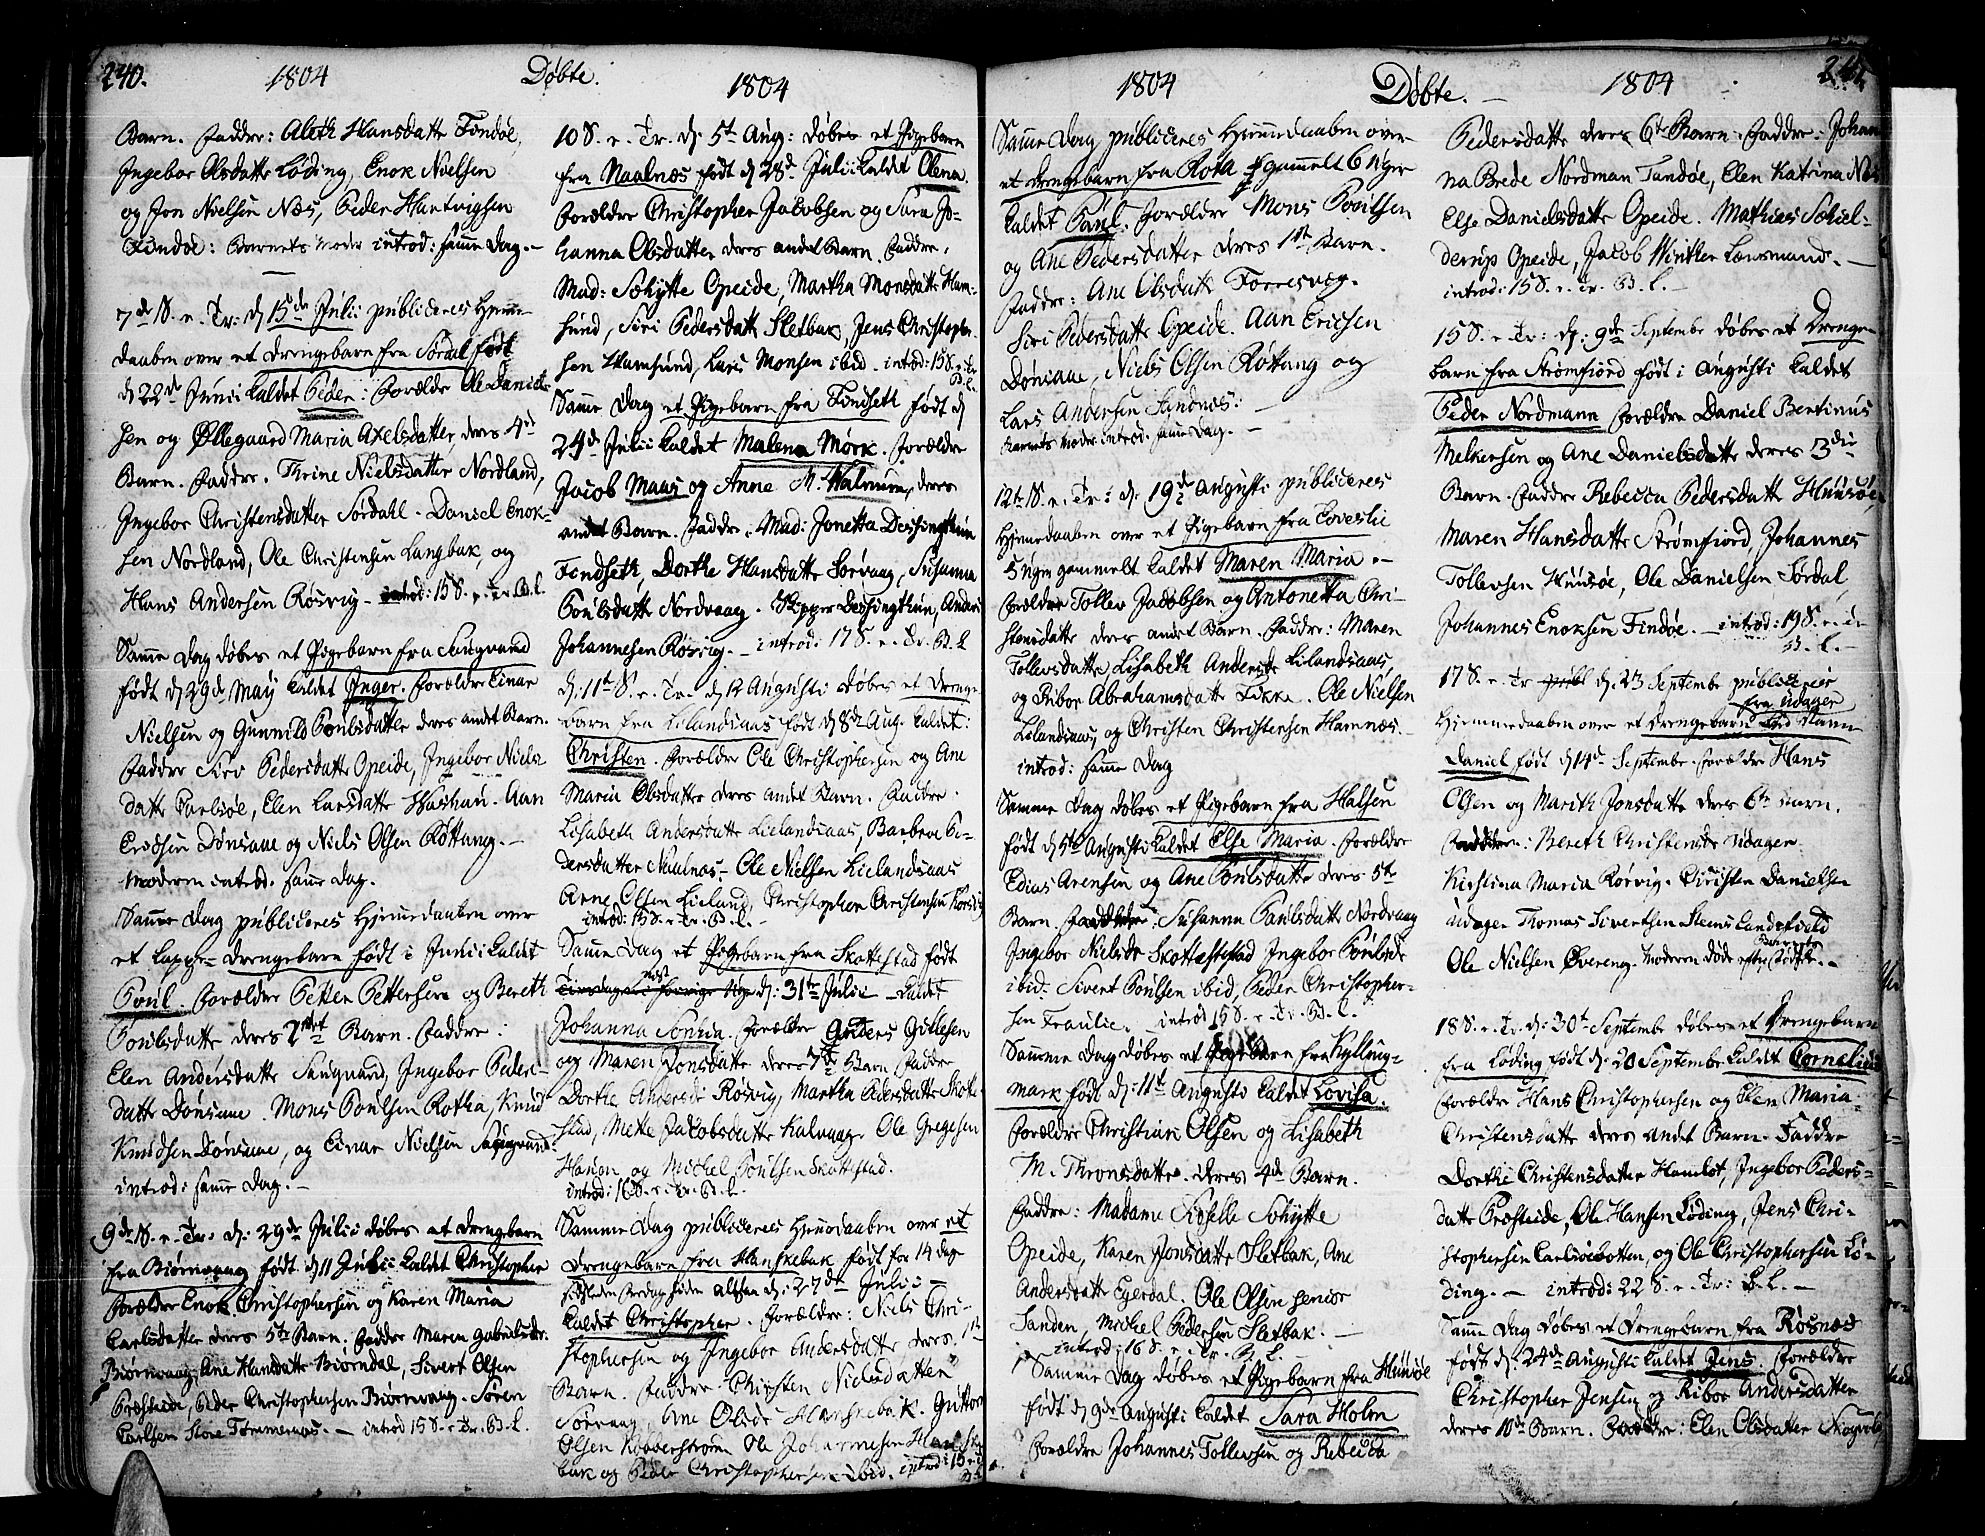 240.
1804
Døbte.
1804
Barn. Faddre: Aleth Hansdatter Findøe,
Ingebor Olsdatter Løding, Enok Nielsen
og Jon Nielsen Næs, Peder Hartvigsen
Findøe: Barnets Moder introd: samme Dag. -
7de S. e. Tr: d: 15de Julii publiceres Hjemme
daaben over et Drengebarn fra Sørdal født
d 22de Junii kaldet Peder: Forældre Ole Daniel
sen og Øllegaard Maria Axelsdatter, deres 4de
Barn. Faddre. Thrine Nielsdatter Nordland,
Ingebor Christensdatter Sørdahl. Daniel Enok-
sen Nordland, Ole Christensen Langbak, og
Hans Andersen Røsvig - introd: 15 S. e. Tr. B. L.
Samme Dag døbes et Pigebarn fra Saugvand
født d 29de May kaldet Inger. Forældre Einar
Nielsen og Gunnild Poulsdatter deres andet Barn.
Faddre Siri Pedersdatter Opeide, Ingebor Niels
datter Karlsøe, Elen Larsdatter. Aan
Ericsen Dønsaue og Niels Olsen Røttang. -
Moderen introd. samme Dag.
Samme Dag publiceres Hjemmedaaben over
et Lappe-Drengebarn født i Junii kaldet
Poul. Forældre Petter Pettersen og Bereth
Poulsdatter deres Barn. Faddre:
Elen Andersdatter Saugvand, Ingebor Peders-
datter Dønsaue. Mons Poulsen Rotha, Knud
Knudsen Dønsaue, og Einar Nielsen Saugvand.
introd: samme Dag. -
9de S. e. Tr: d: 29de Julii døbes et Drengebarn
fra Biørnvaag født d 11 Julii kaldet Christopher
Forældre Enok Christophersen og Karen Maria
Carlsdatter deres 5te Barn. Faddre Maren Gabrielsdr.
Biørnvaag, Ane Hansdatter Biørndal, Sivert Olsen
Præsteide, Peder Christophersen Biørnvaag. Søren
Carlsen Store Tømmernæs. - introd 15 S. e. Tr. B. L.
10 S. e. Tr. d: 5te Aug: døbes et Pigebarn
fra Naalnæs født d 28de Julii kaldet Olena
Forældre Christopher Jacobsen og Sara Jo-
hanna Olsdatter deres andet Barn. Faddre.
Mad: Schytte Opeide, Martha Monsdatter Ham-
sund, Siri Pedersdatter Sletbak, Jens Christopher
sen Hamsund, Lars Monsen ibid. introd: 15 S. e. Tr
B. L.
Samme Dag et Pigebarn fra Findseth født d
24de Julii kaldet Malena Mørk. Forældre
Jacob Maas og Anne M. Walnum, deres
andet Barn. Faddre. Mad: Jonetta Dessingthun
Findseth, Dorthe Hansdatter Sørvaag, Susanna
Poulsdatter Nordvaag. Skipper Dessingthun, Anders
Johannesen Røsvig. - introd: 17 S. e. Tr. B. L
d: 11te S. e. Tr. d 12 Augusti døbes et Drenge
barn fra Lilandsaas født d 8de Aug. kaldet:
Christen. Forældre Ole Christophersen og Ane
Maria Olsdatter deres andet Barn. Faddre.
Lisabeth Andersdatter Lielandsaas, Barbra Pe-
dersdatter Naalnæs - Ole Nielsen Lielandsaas
Arne Olsen Lieland, Christopher Christensen
introd: 15 S. e. Tr. B. L. -
Samme Dag et Pigebarn fra Skottestad født
d: 31te Julii kaldet
Johanna Sophia. Forældre Anders Gullesen
og Maren Jonsdatter deres 7de Barn. Faddre
Dorthe Andersdr Røsvig, Martha Pedersdatter Skotte-
stad, Mette Jacobsdatter Kalvaag. Ole Gregesen
Hanon og Michel Poulsen Skottestad.
introd: 16 S. e. Tr. B. L.
Samme Dag publiceres Hjemedaaben over et
Drengebarn fra Hanskebak født for 14 dage
siden altsaa d: 27de Julii -
kaldet Christopher. Forældre: Niels Chri-
stophersen og Ingebor Andersdatter deres 1te
Barn. Faddre - Christen Nielsdatter
Sørvaag, Ane Olsdr Hanskebak. Guttorm
Olsen Kobberstrøm Ole Johannesen Hanske
bak og Peder Christophersen ibid. introd: 15 e. Tr
B. L.
1804
Døbte. -
1804
241.
Samme Dag publiceres Hjemmedaaben over
et Drengebarn fra Rota gammelt 6 Uger
kaldet Paul. Forældre Mons Poulsen
og Ane Pedersdatter deres 1te Barn.
Faddre: Ane Olsdatter Forresvog.
Siri Pedersdatter Opeide. Aan Ericsen
Dønsaue, Niels Olsen Røttang og
Lars Andersen Sandnæs: -
Barnets Moder introd. samme Dag. -
12te S. e. Tr: d. 19de Augusti publiceres
Hjemmedaaben over et Pigebarn fra
5 Uger gammelt kaldet Maren Maria. -
Forældre Tollev Jacobsen og Antonetta Chri-
stensdatter deres andet Barn. Faddre: Maren
Tollevsdatter, Lisabeth Andersdr Lilandsaas,
og Ribor Abrahamsdatter Likke. Ole Nielsen
Lilandsaas, og Christen Christensen Hamnæs.
introd: samme Dag
Samme Dag døbes et Pigebarn fra Halsen
født d 5te Augusti kaldet Else Maria. Forældre
Edias Arensen og Ane Poulsdatter deres 5te
Barn. Faddere. Susanna Paulsdatter Nordvaag
Ingebor Nielsdr Skottestad Ingebor Poulsdr
ibid. Sivert Poulsen ibid, Peder Christopher-
sen. introd 15 S. e. Tr. B. L.
Samme Dag døbes et Pigebarn fra Kylling-
mark født d: 11te Augusti kaldet Lovisa.
Forældre Christian Olsen og Lisabeth
M. Thronsdatter. deres 4de Barn.
Faddre: Madame Sidselle Schytte
Opeide, Karen Jonsdatter Sletbak, Ane
Andersdatter Egerdal. Ole Olsen Senior
Sanden, Michel Pedersen Sletbak. -
introd: 16 S. e. Tr. B. L. -
Samme Dag døbes et Pigebarn fra Hunsøe
født d 9de Augusti kaldet Sara Holm
Forældre Johannes Tollevsen og Rebecca
Pedersdatter deres 6te Barn. Faddre. Johan
na Brede Nordman Tandøe, Elen Katrina Næs
Else Danielsdatter Opeide. Mathias Schiel-
derup Opeide, Jacob Winther Lensmand. -
introd: 15 S. e. Tr. B. L. -
15 S. e Tr: d: 9de Septembr døbes et Drenge-
barn fra Strømfiord født i Augusti kaldet
Peder Nordmann Forældre Daniel Bertinus
Melkersen og Ane Danielsdatter deres 3die
Barn. Faddre Rebecca Pedersdatter Hunsøe,
Maren Hansdatter Strømfiord, Johannes
Tollevsen Hunsøe, Ole Danielsen Sørdal,
Johannes Enoksen Findøe. - introd: 19 S. e. Tr
B. L. -
17 S. e. Tr d. 23 Septembr publiceres
fra Udager
Hjemmedaaben over et Drengebarn ved Navn
Daniel født d 14de Septembr. Forældre Hans
Olsen og Marith Jonsdatter deres 6te Barn.
Faddren: Bereth Christensdr Udager
Kirstina Maria Rørvig. Christen Danielsen
Udager Thomas Sivertsen Stensland
Ole Nielsen Øvereng. Moderen døde efter Fødsle. -
18 S. e. Tr. d: 30te Septembr døbes et Drengebarn
fra Løding født d: 20 September kaldet Cornelius
Forældre Hans Christophersen og Elen Maria
Christensdatter deres andet Barn. Faddre
Dorthe Christensdatter Hamlot, Ingebor Peders-
datter Præsteide, Ole Hansen Løding, Jens Chri-
stophersen Carlsøebotten, og Ole Christophersen Lø-
ding. - introd: 22 S. e. Tr: B. L. -
Samme Dag døbes et Drengebarn fra Røsnæs
født d: 24de Augusti kaldet Jens. Forældre
Christopher Jensen og Ribor Andersdatter
deres 10de Barn. Faddre: Elen Olsdatter